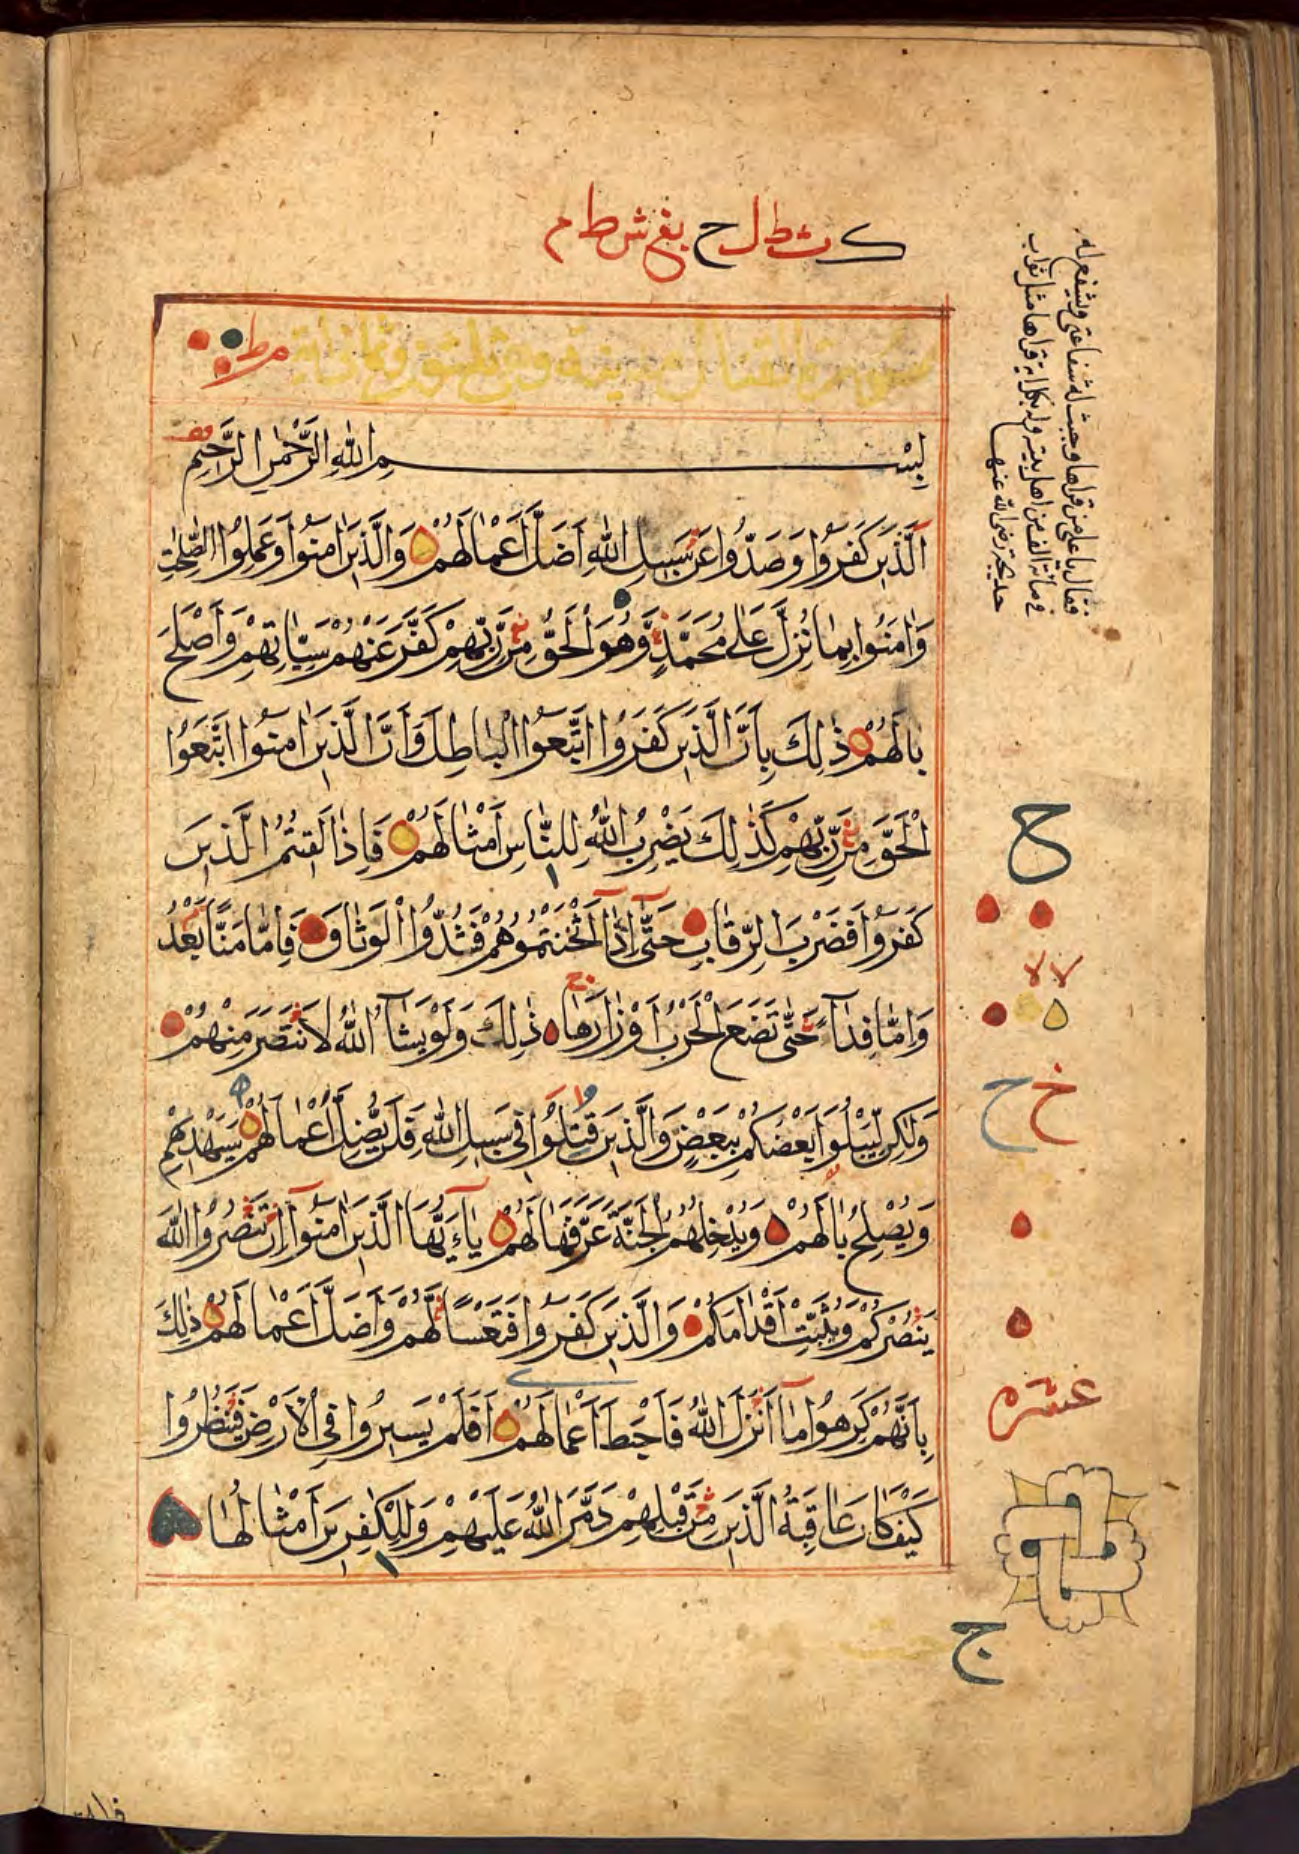 ك ث ط ل ح يفح ش ط م
سورة القتال مدنية وهي ثلثون وثمان اية
بسم الله الرحمن الرحيم
اَلَّذِينَ كَفَرُوا وَصَدُّوا عَنْ سَبِيلِ اللهِ اَضَلَّ اَعْمٰالَهُمْ وَالَّذِينَ اٰمَنُوا وَعَمِلُوا الصّٰلِحٰتِ
وَاٰمَنُوا بِمٰا نُزِّلَ عَلٰى مُحَمَّدٍ وَهُوَ الْحَقُّ مِنْ رَبِّهِمْ كَفَّرَ عَنْهُمْ سَيِّاٰتِهِمْ وَاَصْلَحَ
بٰالَهُمْ ذٰلِكَ بِاَنَّ الَّذِينَ كَفَرُوا اتَّبَعُوا الْبٰاطِلَ وَاَنَّ الَّذِينَ اٰمَنُوا اتَّبَعُوا
الْحَقَّ مِنْ رَبِّهِمْ كَذٰلِكَ يَضْرِبُ اللهُ لِلنّٰاسِ اَمْثٰالَهُمْ فَاِذٰا لَقِيتُمُ الَّذِينَ
كَفَرُوا فَضَرْبَ الرِّقٰابِ حَتّٰى اِذٰا اَثْخَنْتُمُوهُمْ فَشُدُّوا الْوَثٰاقَ فَاِمّٰا مَنًّا بَعْدُ
وَاِمّٰا فِدٰآءً حَتّٰى تَضَعَ الْحَرْبُ اَوْزٰارَهٰا ذٰلِكَ وَلَوْ يَشٰآءُ اللهُ لَانْتَصَرَ مِنْهُمْ
وَلٰكِنْ لِيَبْلُوَا بَعْضَكُمْ بِبَعْضٍ وَالَّذِينَ قُتِلُوا فِي سَبِيلِ اللهِ فَلَنْ يُضِلَّ اَعْمٰالَهُمْ سَيَهْدِيهِمْ
وَيُصْلِحُ بٰالَهُمْ وَيُدْخِلُهُمُ الْجَنَّةَ عَرَّفَهٰا لَهُمْ يٰاۤءَيُّهَا الَّذِينَ اٰمَنُوا اِنْ تَنْصُرُوا اللهَ
يَنْصُرْكُمْ وَيُثَبِّتْ اَقْدٰامَكُمْ وَالَّذِينَ كَفَرُوا فَتَعْسًا لَهُمْ وَاَضَلَّ اَعْمٰالَهُمْ ذٰلِكَ
بِاَنَّهُمْ كَرِهُوا مٰا اَنْزَلَ اللهُ فَاَحْبَطَ اَعْمٰالَهُمْ اَفَلَمْ يَسِيرُوا فِي الْاَرْضِ فَيَنْظُرُوا
كَيْفَ كٰانَ عٰاقِبَةُ الَّذِينَ مِنْ قَبْلِهِمْ دَمَّرَ اللهُ عَلَيْهِمْ وَلِلْكٰفِرِينَ اَمْثٰالُهٰا
فقال يا علي من قراها وجبت له شفاعتي ويشفع له
في مائة الف من اهل بيته وله بكل اية قراها مثل ثواب
خديجة رضي الله عنها
ح
لا لا
خ ح
عشره
ج